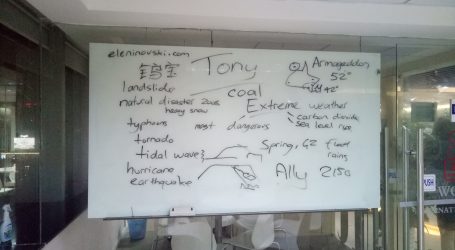 eleninovski.com
Tony
Armageddon
52°
42°
landslide
coal
natural disaster 2008
heavy snow
Extreme weather
carbon dioxide
sea level rise
typhoons
most dangerous
tornado
tidal wave
Spring, G2 flood
rains
hurricane
Ally 2150
earthquake
PUSH